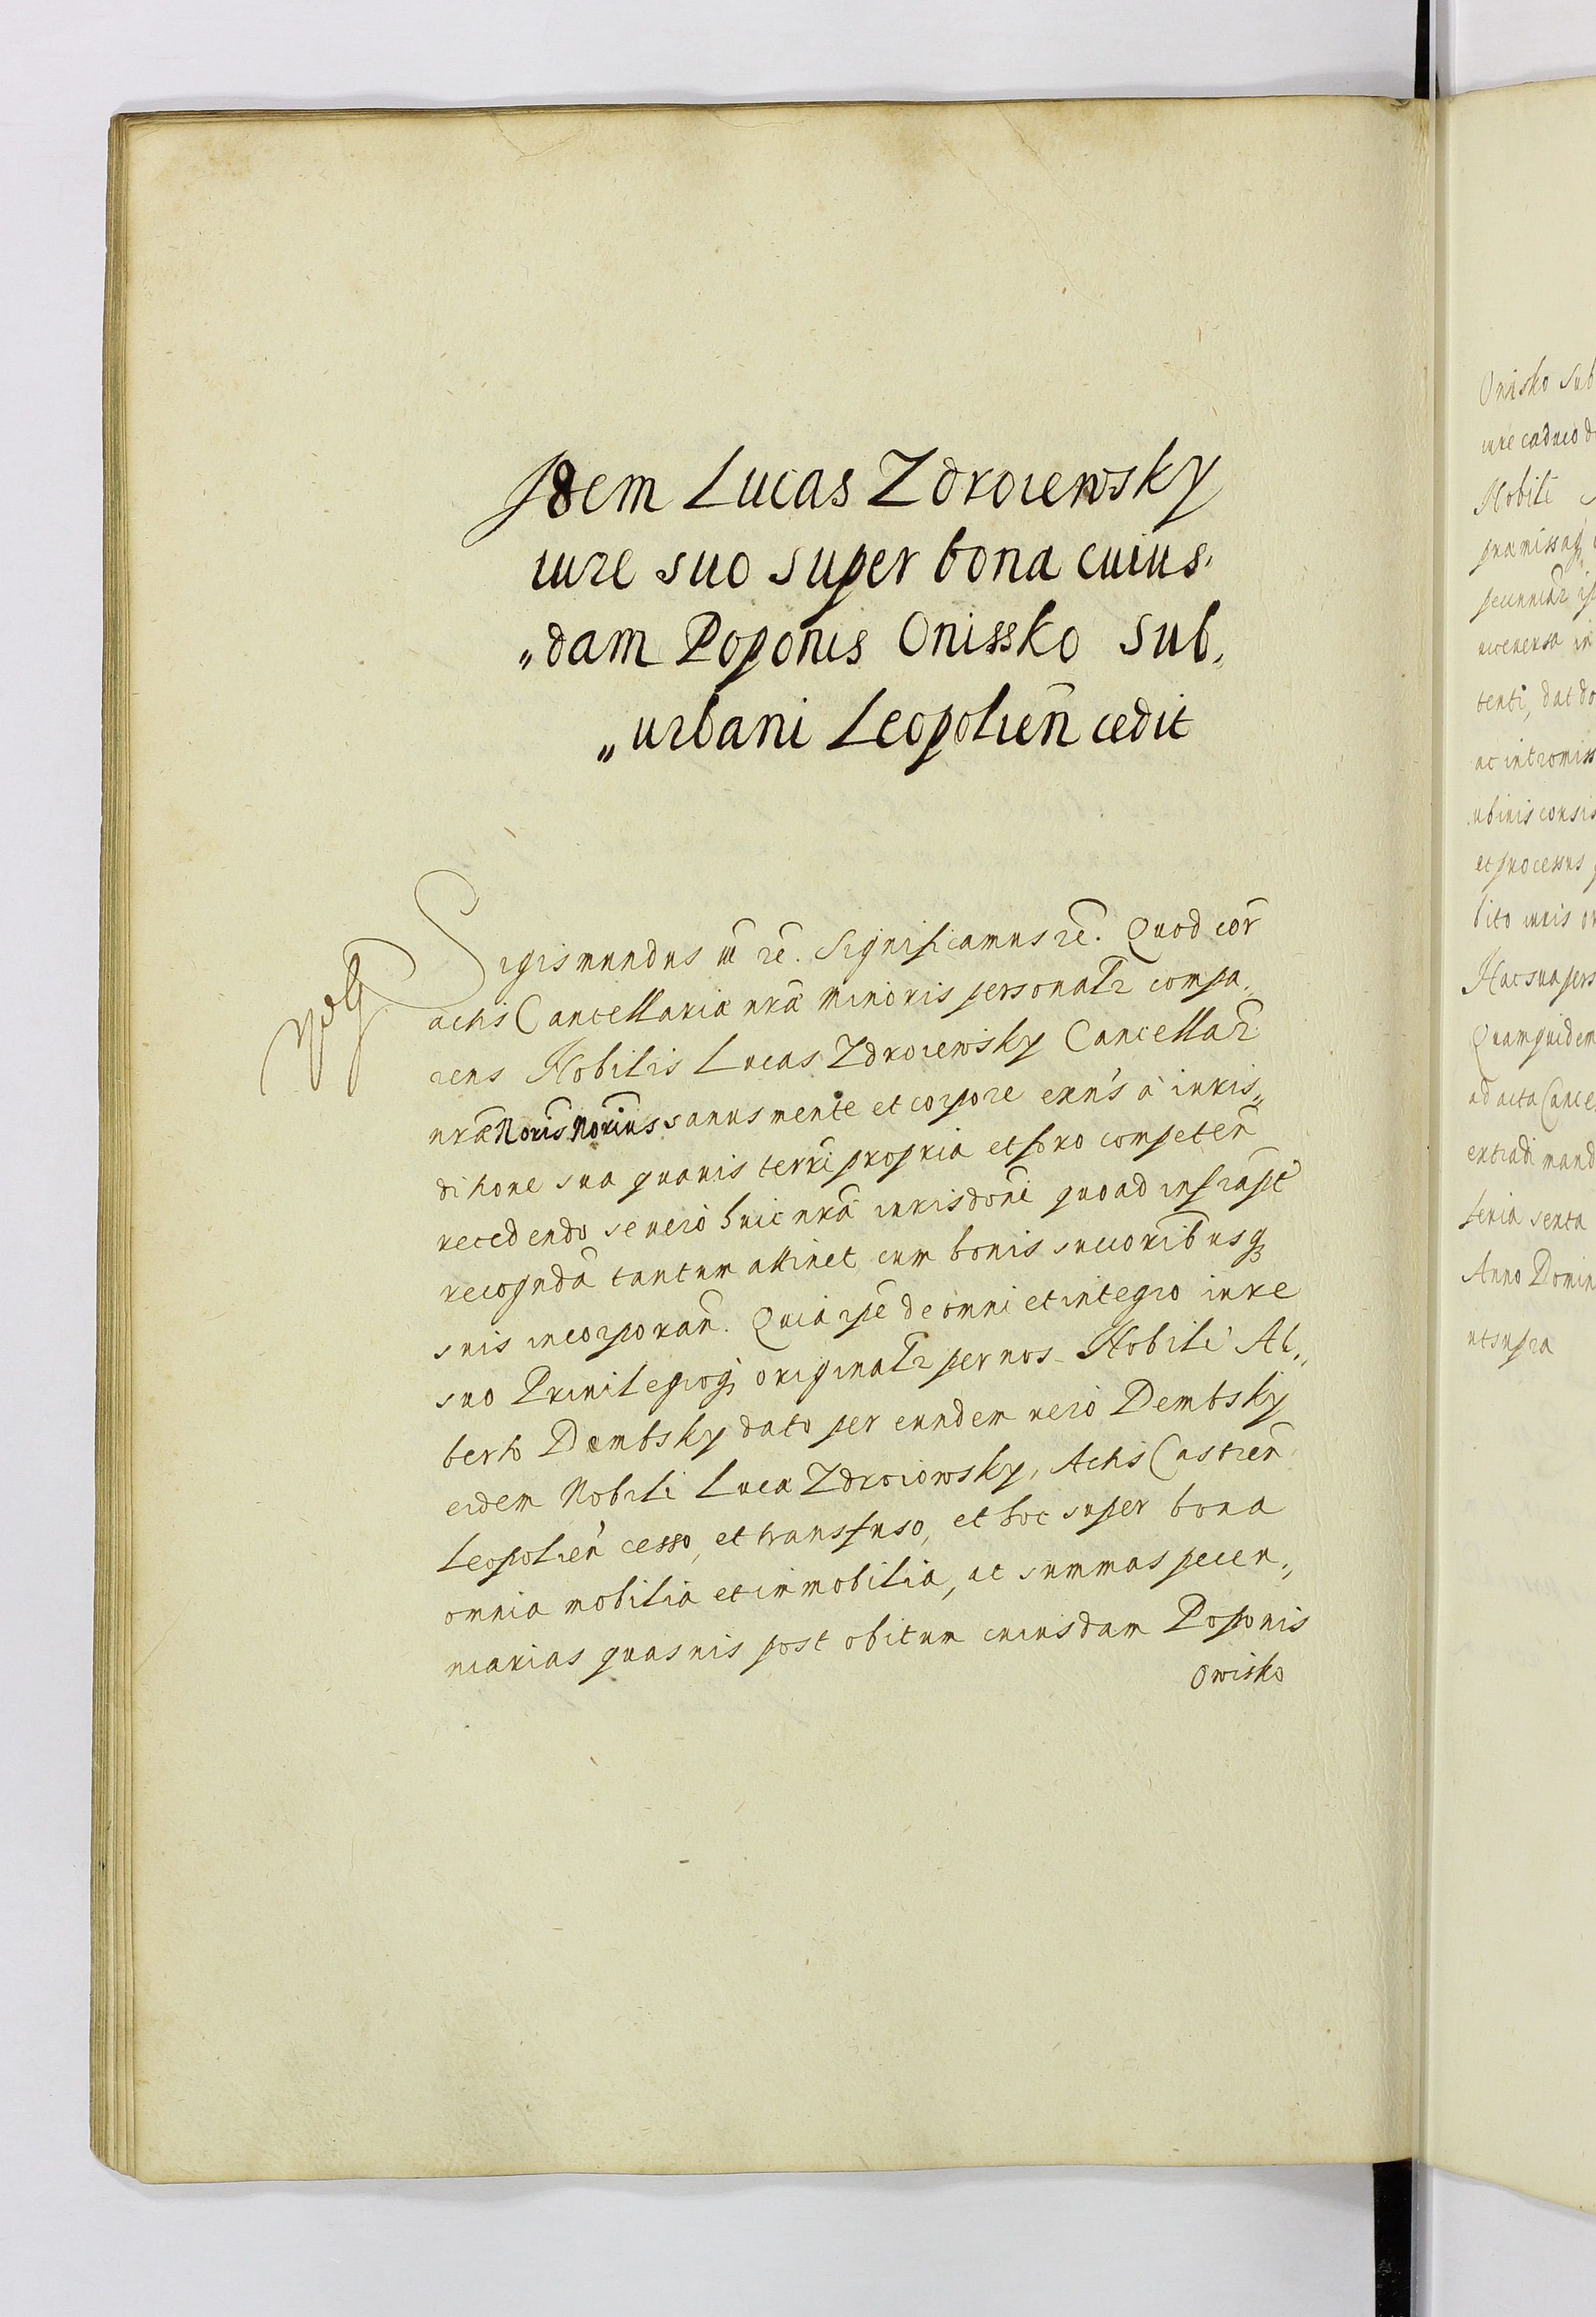 Idem Lucas Zdroiewsky
iure suo super bona cuius,
„dam Poponis Onissko Sub,
„urbani Leopolien̄ cedit
Sigismundus iii rē. Significamus rē. Quod cor̄
actis Cancellariæ nr̄æ minoris personalr̄ compa,
rens Nobilis Lucas Zdroiewsky Cancellar̄
nr̄æ Noris Norius sanus mente et corpore exn̄s à iuris„
ditione sua quauis terrī propria et foro competen̄
recedendo se verò huic nr̄æ iurisdonī quoad infrascpt̄
recogndā tantum attinet cum bonis succoribusq́
suis incorporan̄. Quia ipē de omni et integro iure
suo Priuilegioq́ originalr̄ per nos Nobili Al„
berto Dembsky dato per eundem verò Dembsky
eidem Nobili Lucæ Zdroiowsky, Actis Castren̄
Leopolien̄ cesso, et transfuso, et hoc super bona
omnia mobilia et immobilia, ac summas pecun„
niarias quasuis post obitum cuiusdam Poponis
Onisko
Onisko Sub
iure caduco
Nobili
præmissaq́
tenti, dat
ac intromiss
et processus
Quam quidem
ad acta Cance
extradi mand
feria sexta
Anno Domin
ut supra